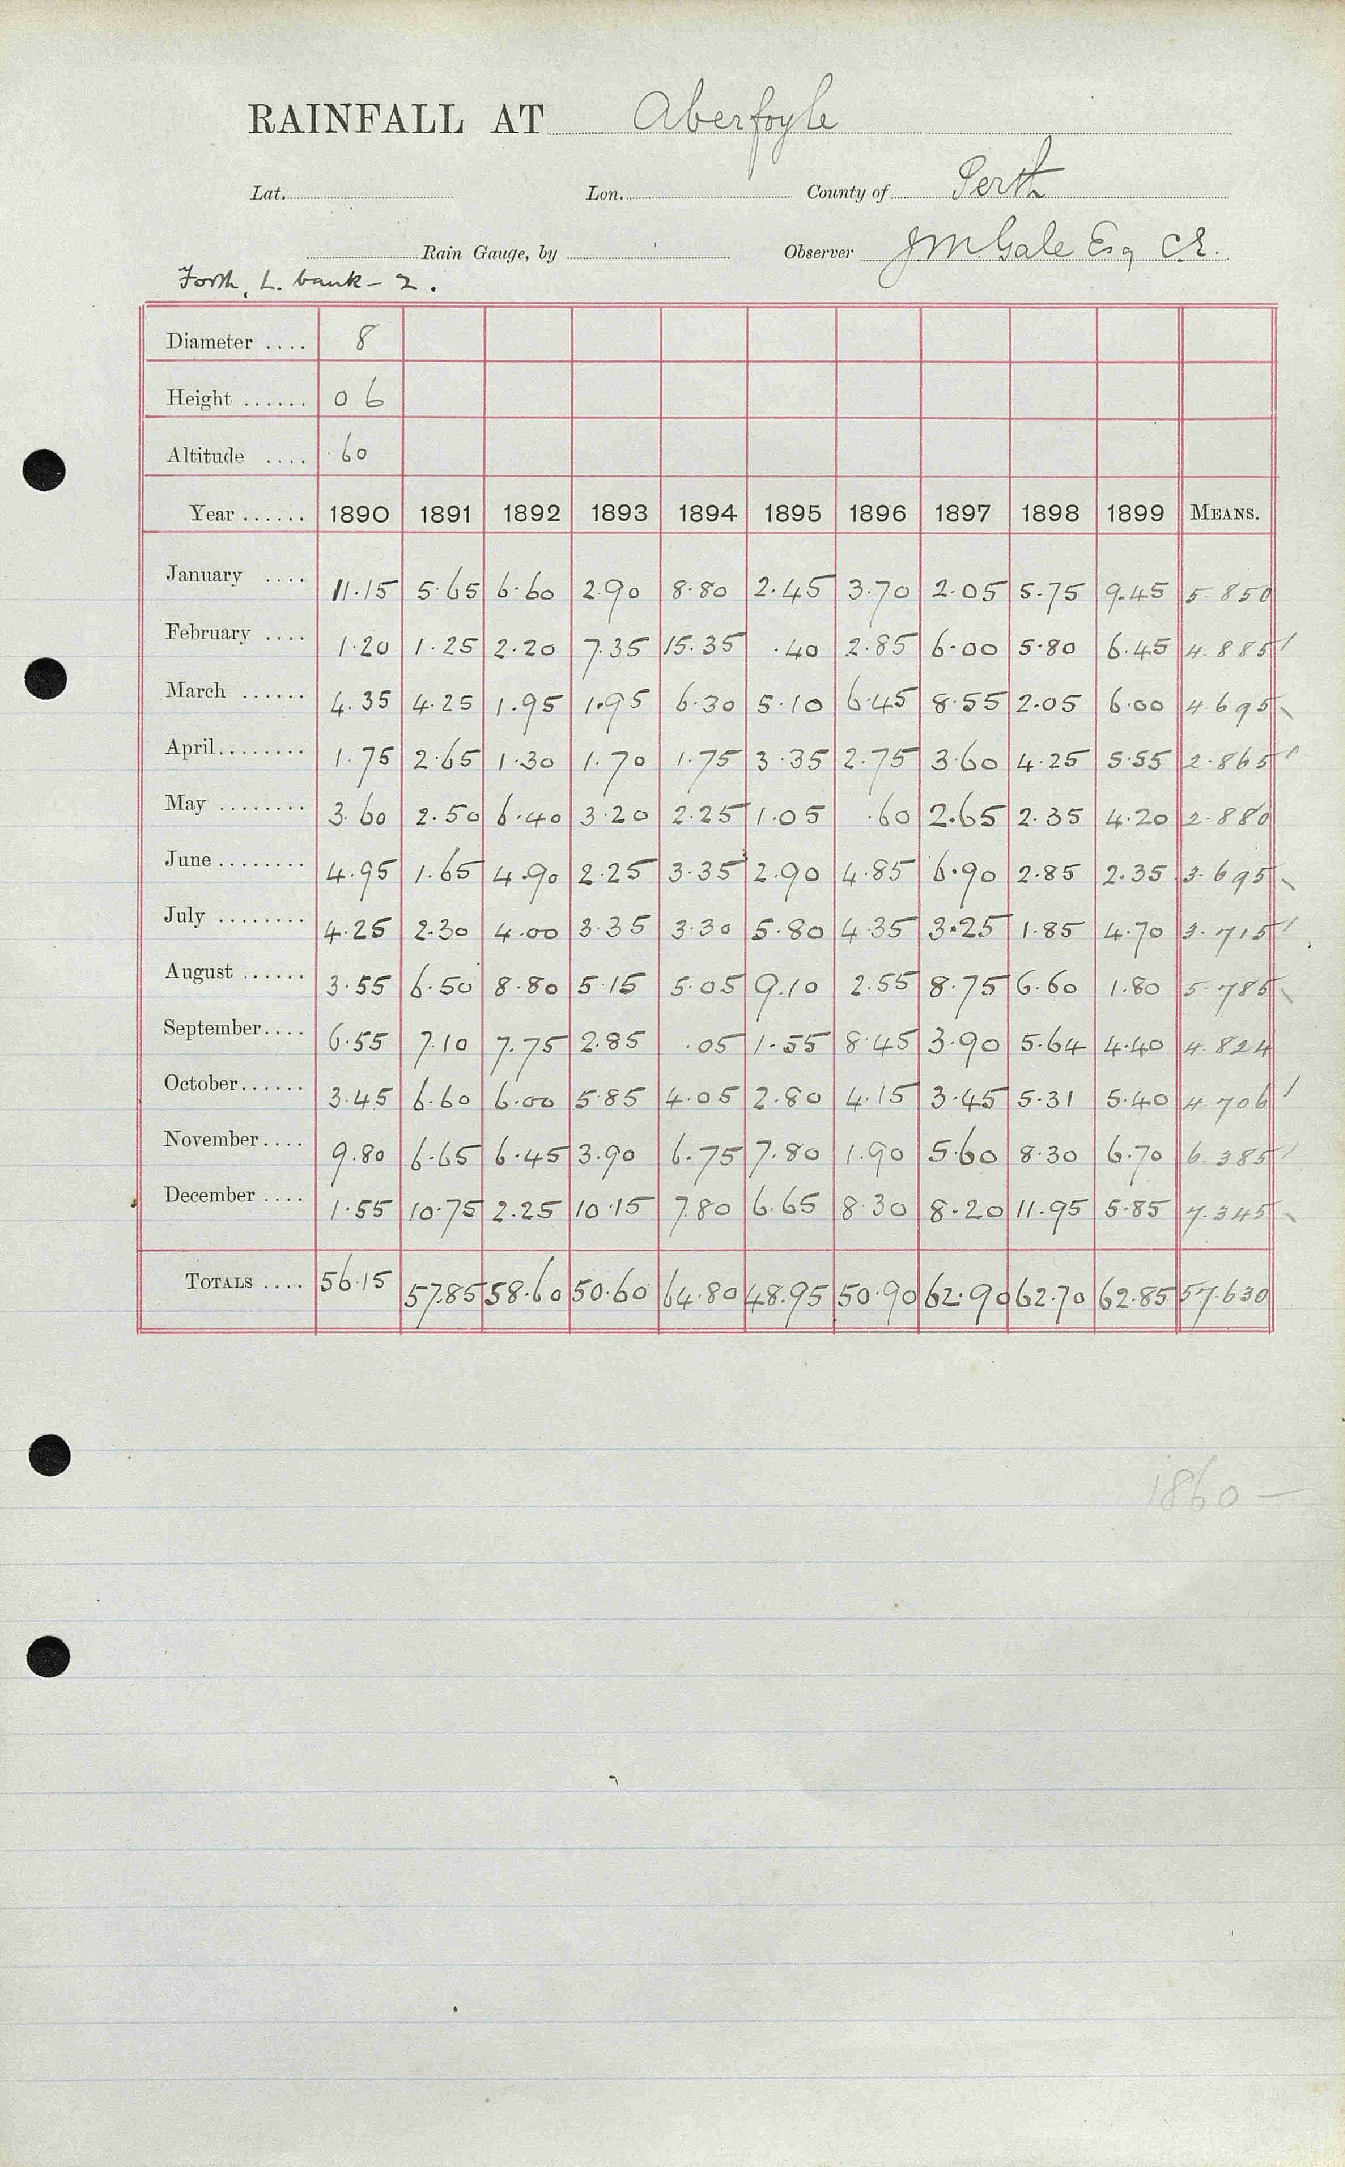 RAINFALL AT Aberfoyle
Lat. Lon. County of Perth
Rain Gauge, by Observer J M Gale Esq C.E.
Forth, L. bank - 2.
Diameter .... 8
Height ...... 0 6
Altitude .... 60
Year ...... 1890 1891 1892 1893 1894 1895 1896 1897 1898 1899 MEANS.
January .... 11.15 5.65 6.60 2.90 8.80 2.45 3.70 2.05 5.75 9.45 5.850
February .... 1.20 1.25 2.20 7.35 15.35 .40 2.85 6.00 5.80 6.45 4.885
March ...... 4.35 4.25 1.95 1.95 6.30 5.10 6.45 8.55 2.05 6.00 4.695
April ........ 1.75 2.65 1.30 1.70 1.75 3.35 2.75 3.60 4.25 5.55 2.865
May ........ 3.60 2.50 6.40 3.20 2.25 1.05 .60 2.65 2.35 4.20 2.880
June ........ 4.95 1.65 4.90 2.25 3.35 2.90 4.85 6.90 2.85 2.35 3.695
July ........ 4.25 2.30 4.00 3.35 3.30 5.80 4.35 3.25 1.85 4.70 3.715
August ...... 3.55 6.50 8.80 5.15 5.05 9.10 2.55 8.75 6.60 1.80 5.785
September .... 6.55 7.10 7.75 2.85 .05 1.55 8.45 3.90 5.64 4.40 4.824
October ...... 3.45 6.60 6.00 5.85 4.05 2.80 4.15 3.45 5.31 5.40 4.706
November .... 9.80 6.65 6.45 3.90 6.75 7.80 1.90 5.60 8.30 6.70 6.385
December .... 1.55 10.75 2.25 10.15 7.80 6.65 8.30 8.20 11.95 5.85 7.345
TOTALS .... 56.15 57.85 58.60 50.60 64.80 48.95 50.90 62.90 62.70 62.85 57.630
1860 —